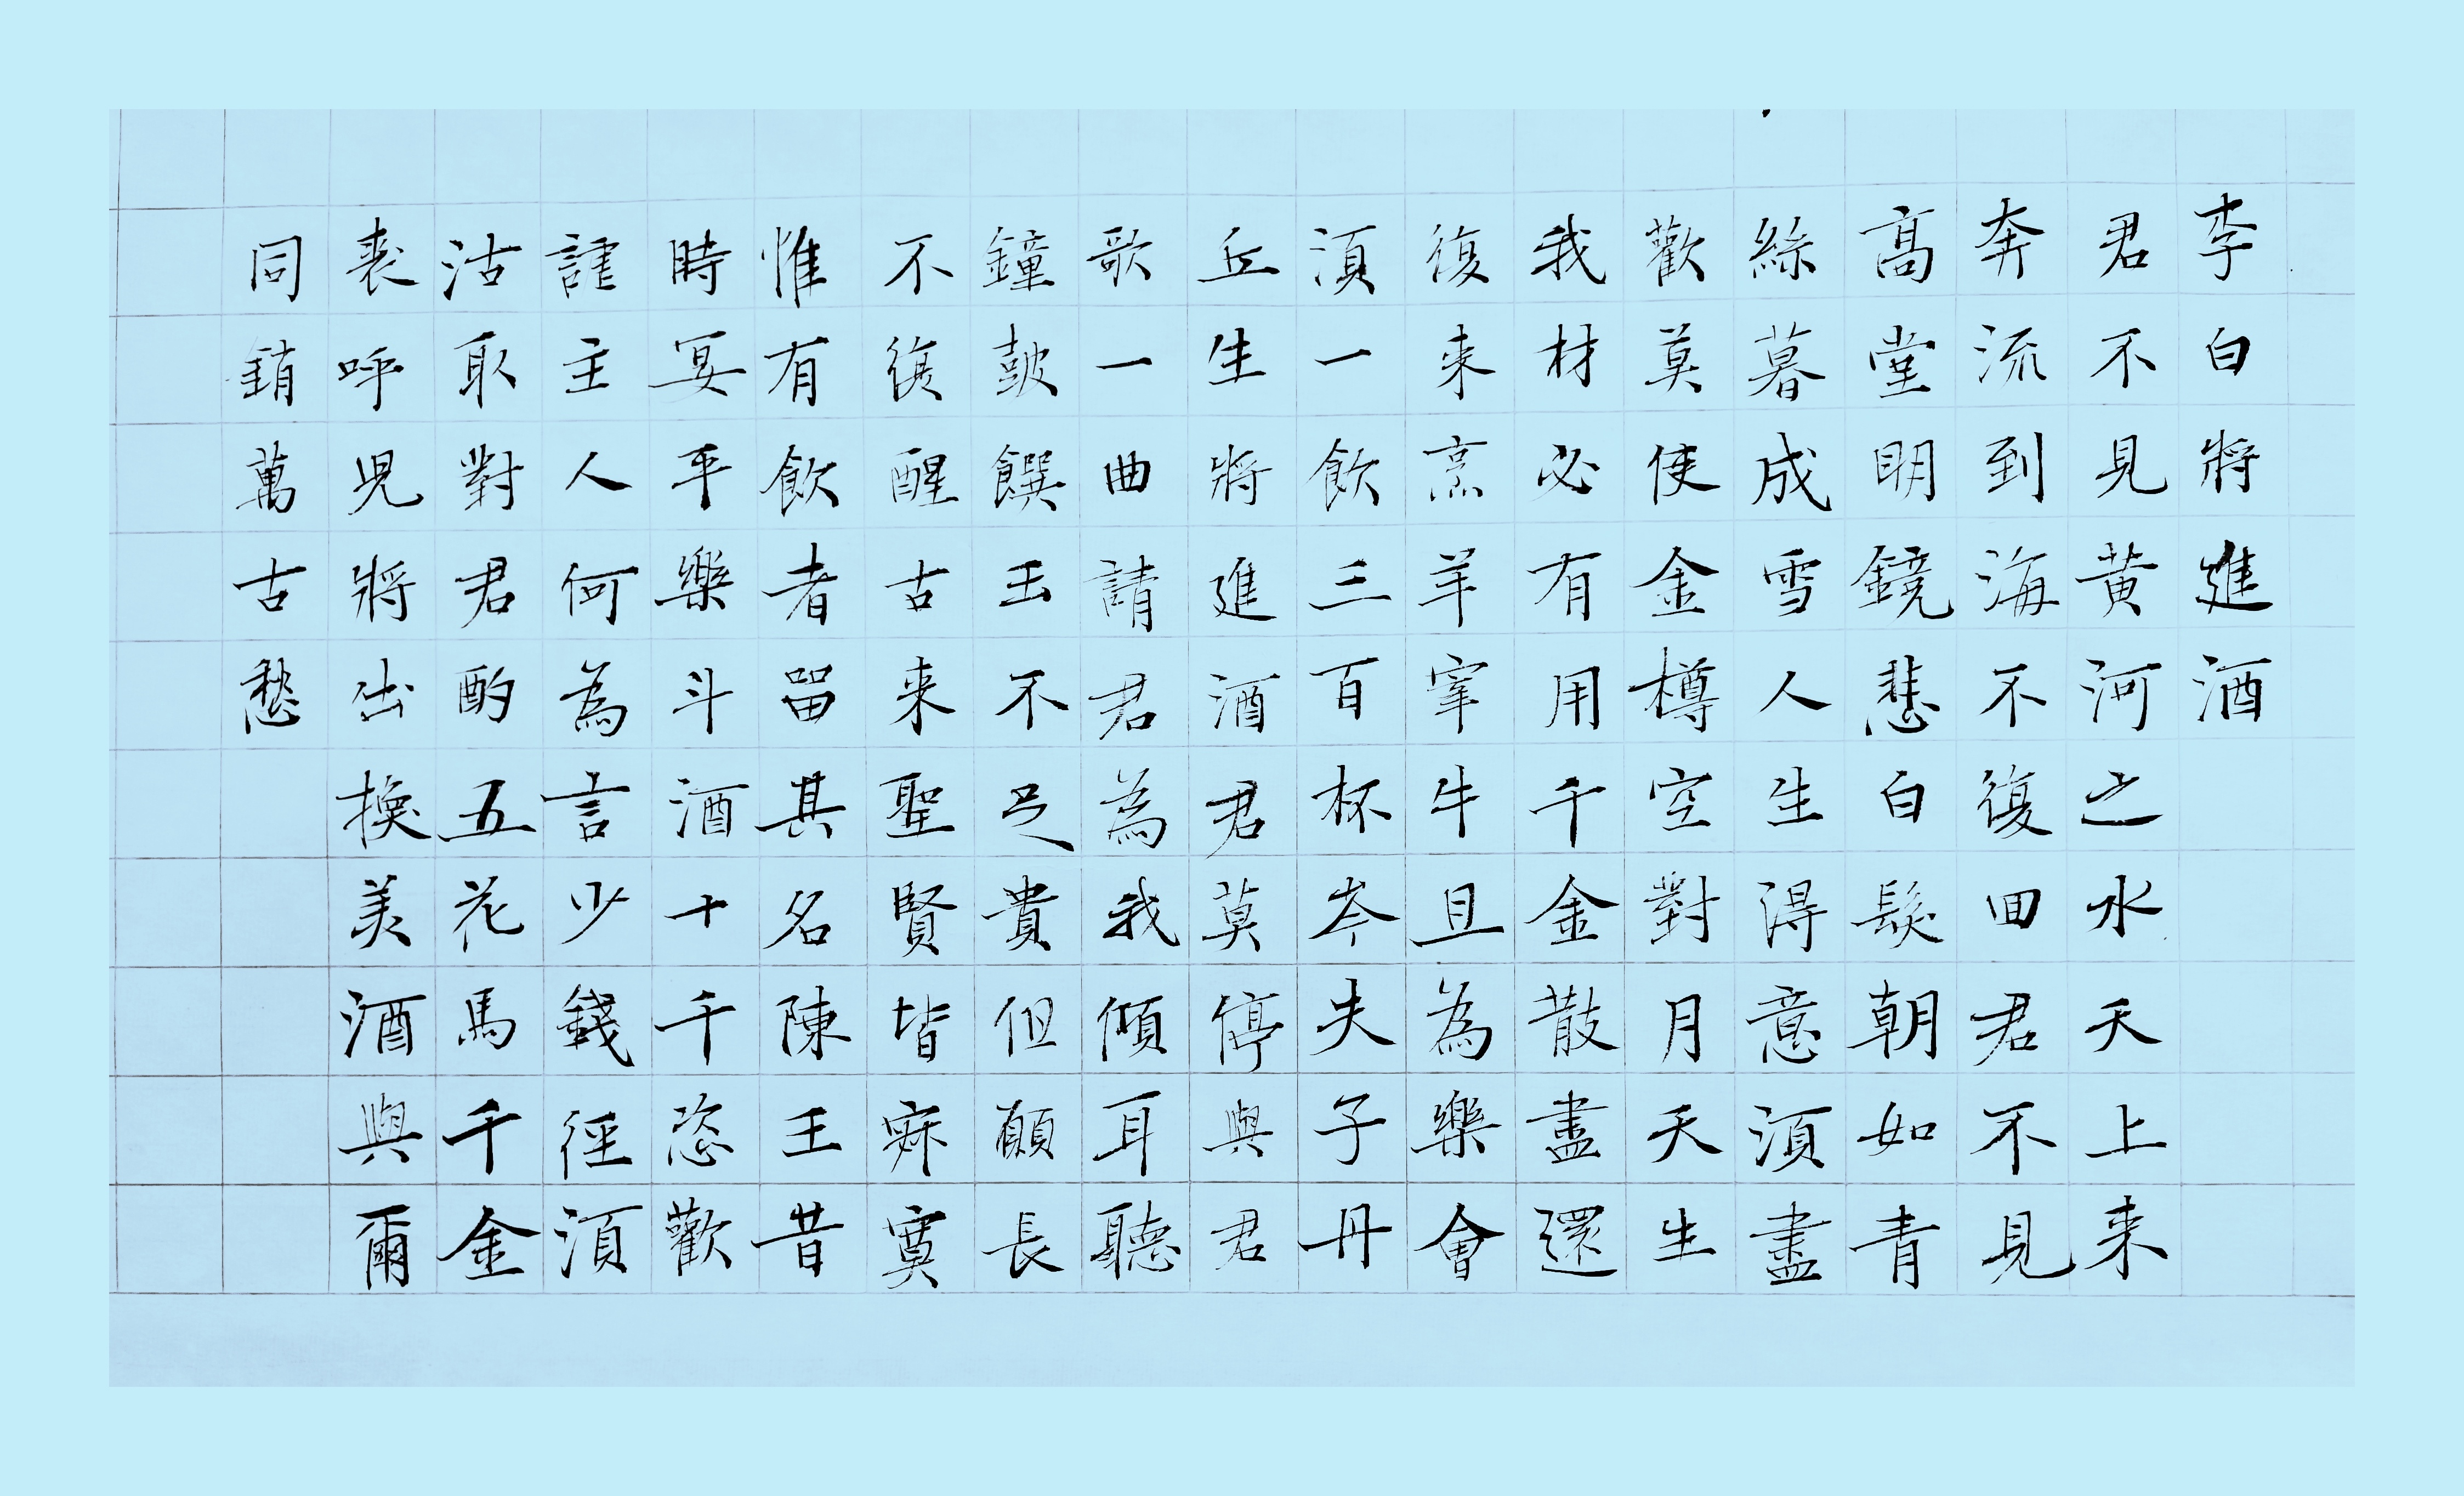 李白將進酒
君不見黃河之水天上来
奔流到海不復回君不見
高堂明鏡悲白髮朝如青
絲暮成雪人生得意須盡
歡莫使金樽空對月天生
我材必有用千金散盡還
復来烹羊宰牛且為樂會
須一飲三百杯岑夫子丹
丘生將進酒君莫停與君
歌一曲請君為我傾耳聽
鐘鼓饌玉不足貴但願長
不復醒古来聖賢皆寂寞
惟有飲者留其名陳王昔
時宴平樂斗酒十千恣歡
謔主人何為言少錢徑須
沽取對君酌五花馬千金
裘呼兒將出換美酒與爾
同銷萬古愁